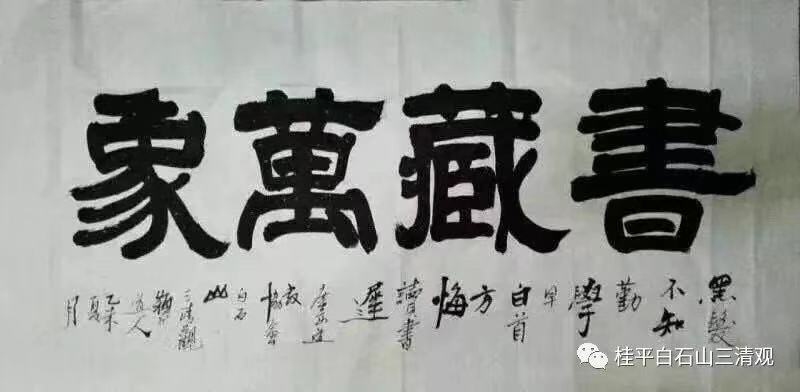 書藏萬象
黑髮
不知
勤
學
早
白首
方
悔
讀書
遲
白石
山
三清觀
道人
乙未
夏
月
桂平白石山三清观